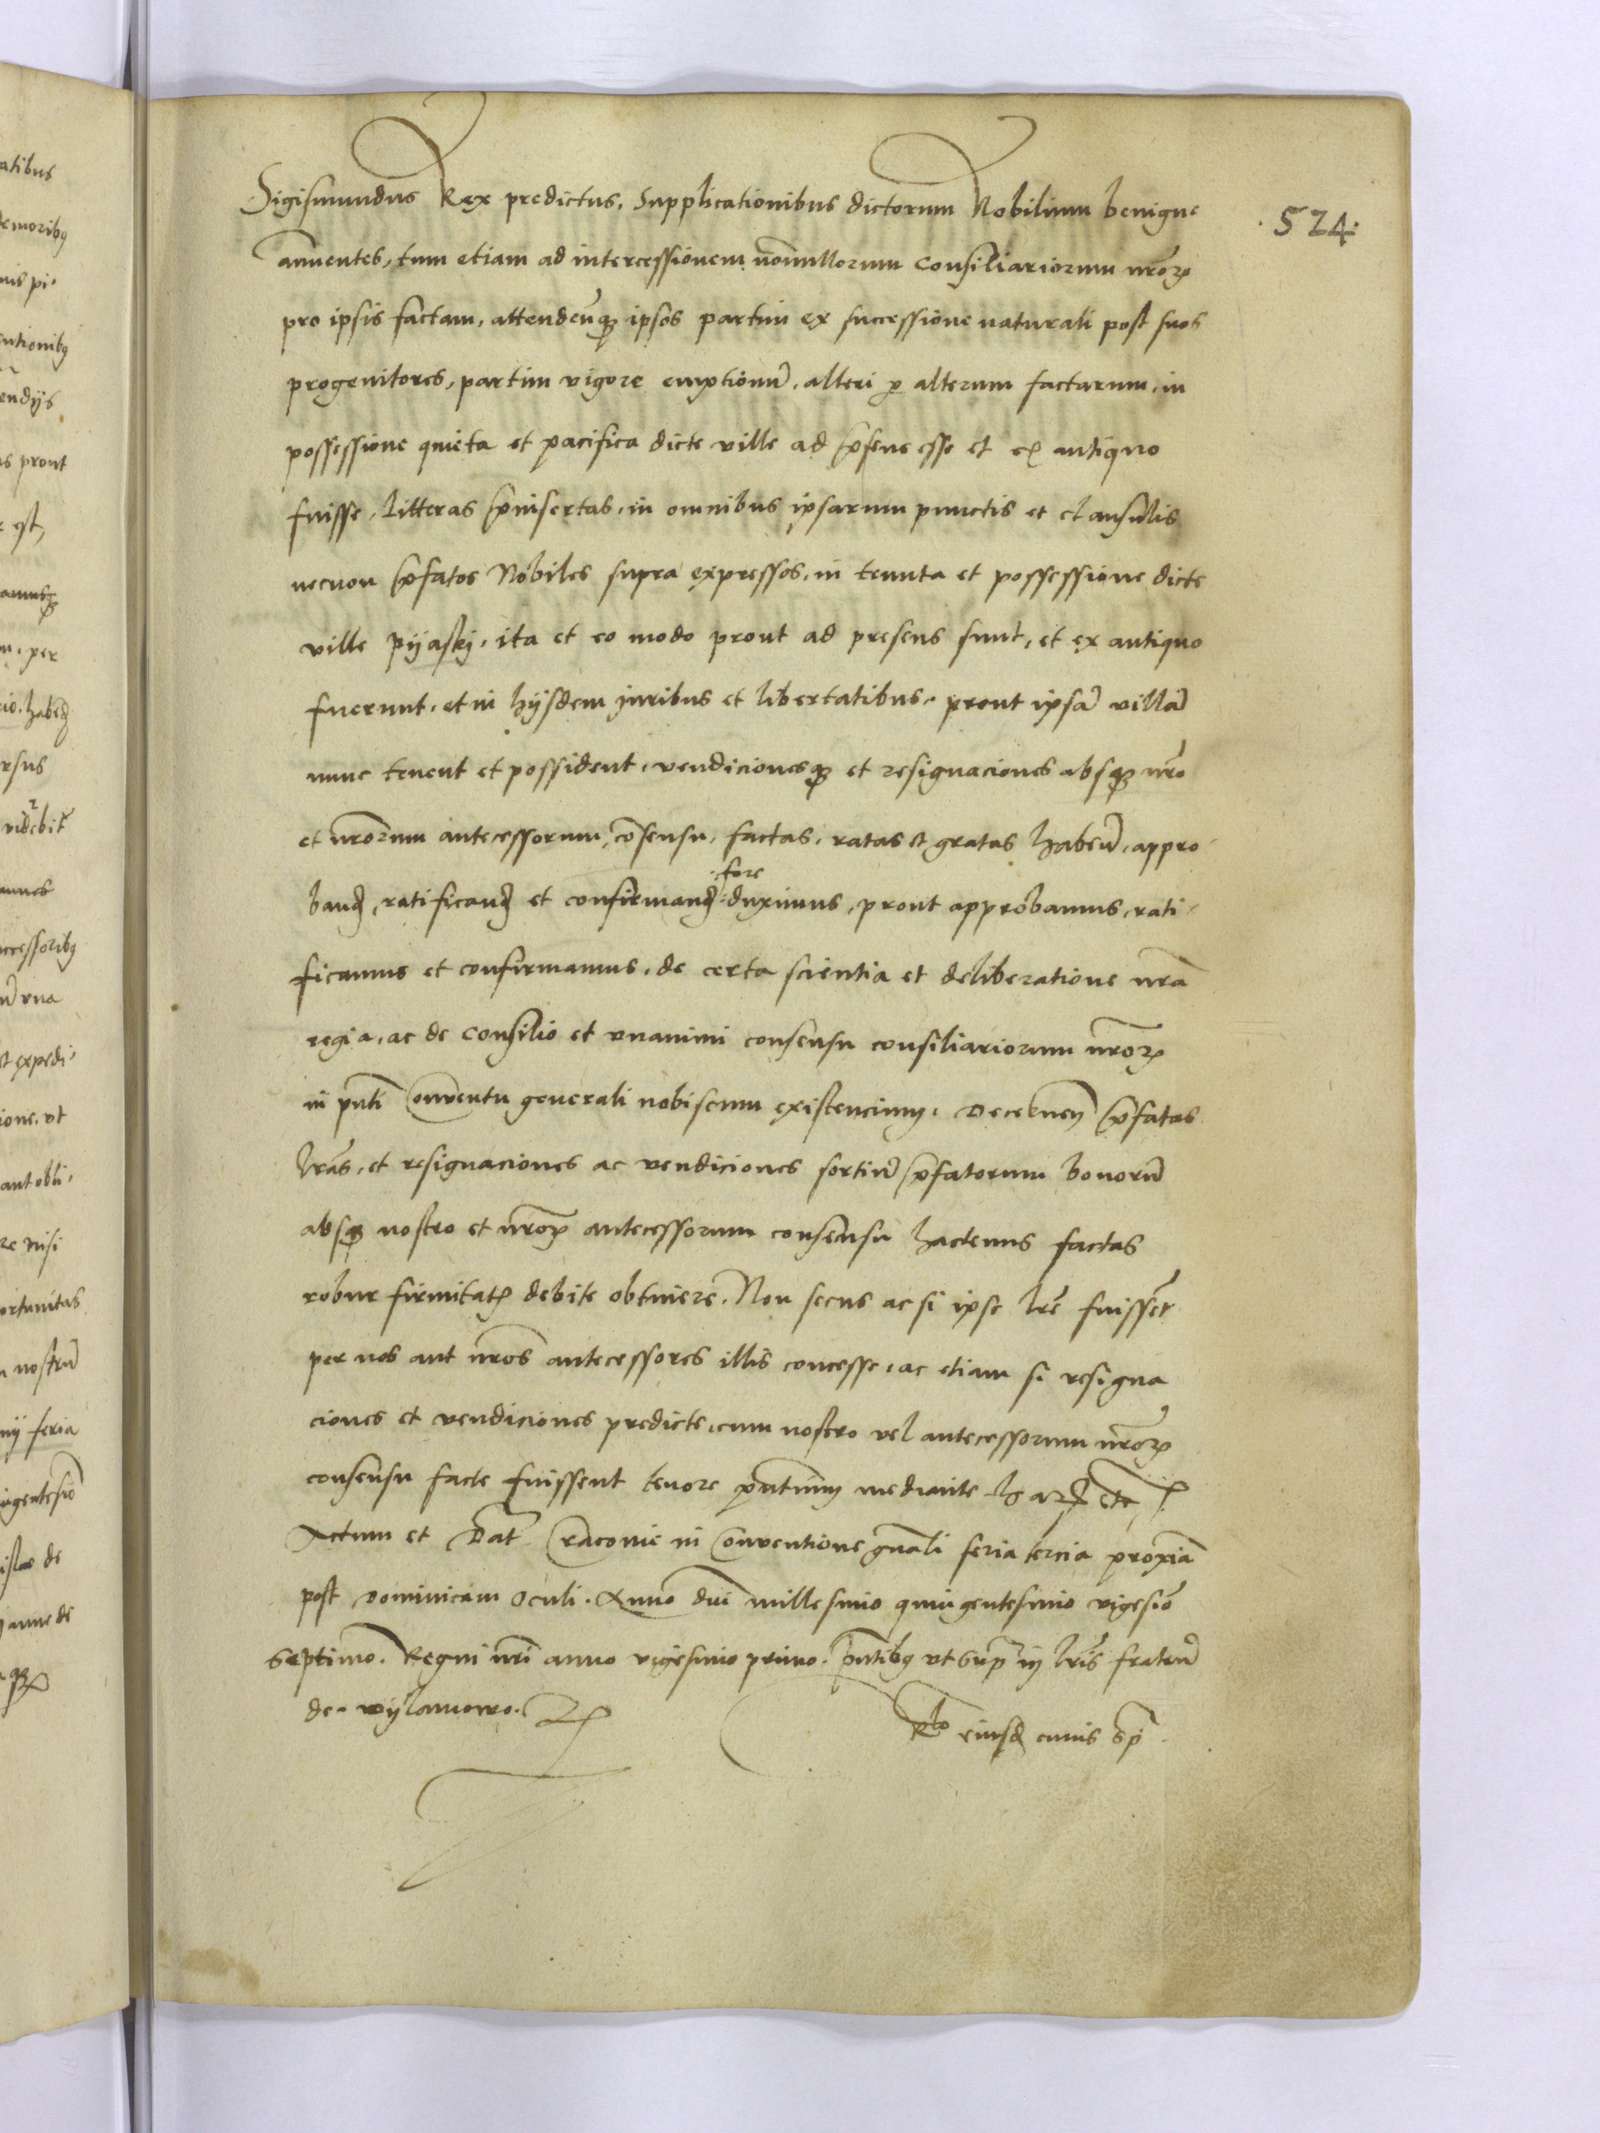 524.
Sigismundus Rex predictus, Supplicationibus dictorum Nobilium benigne
annuentes, tum etiam ad intercessionem nonnullorum Consiliariorum nr̃orꝫ
pro ipsis factam, attendentesqꝫ ipsos partim ex successione naturali post suos
progenitores, partim vigore emptionũ, alteri ꝑ alterum factarum, in
possessione quieta et pacifica dicte ville ad p̃sens esse et ex antiquo
fuisse, Litteras p̃insertas, in omnibus ipsarum punctis et clausulis
necnon p̃fatos Nobiles supra expressos, in tenuta et possessione dicte
ville pijaski, ita et eo modo prout ad presens sunt, et ex antiquo
fuerunt, et in hijsdem iuribus et libertatibus, prout ipsã villã
nunc tenent et possident, vendicionesqꝫ et resignaciones absqꝫ nr̃o
et nr̃orum antecessorum, cõsensu, factas, ratas et gratas habeñ, appro
band̃, ratificand̃ et confirmand̃ fore duximus, prout approbamus, rati
ficamus et confirmamus, de certa scientia et deliberatione nr̃a
regia, ac de Consilio et vnanimi consensu consiliariorum nr̃orꝫ
in p̃nti Conventu generali nobiscum existencium, Decerneñ p̃fatas
lr̃as, et resignaciones ac vendiciones sortiũ p̃fatorum bonorũ
absqꝫ nostro et nr̃orꝫ antecessorum consensu hactenus factas
robur firmitatꝭ debite obtinere. Non secus ac si ipse lr̃e fuissẽt
per nos aut nr̃os antecessores illis concesse, ac etiam si resigna
ciones et vendiciones predicte, cum nostro vel antecessorum nr̃orꝫ
consensu facte fuissent tenore p̃ntium mediante harꝫ etc
Actum et Dat̃ Cracovie in Conventione gñali feria tercia proxiã
post dominicam Oculi. Anno dñi millesimo quingentesimo vigesiõ
septimo. Regni nr̃i anno vigesimo primo. p̃ntibꝫ vt supͣ in lr̃is fratrũ
de wylamowo.
Rͭᵒ eiusd̃ cuius sͣp